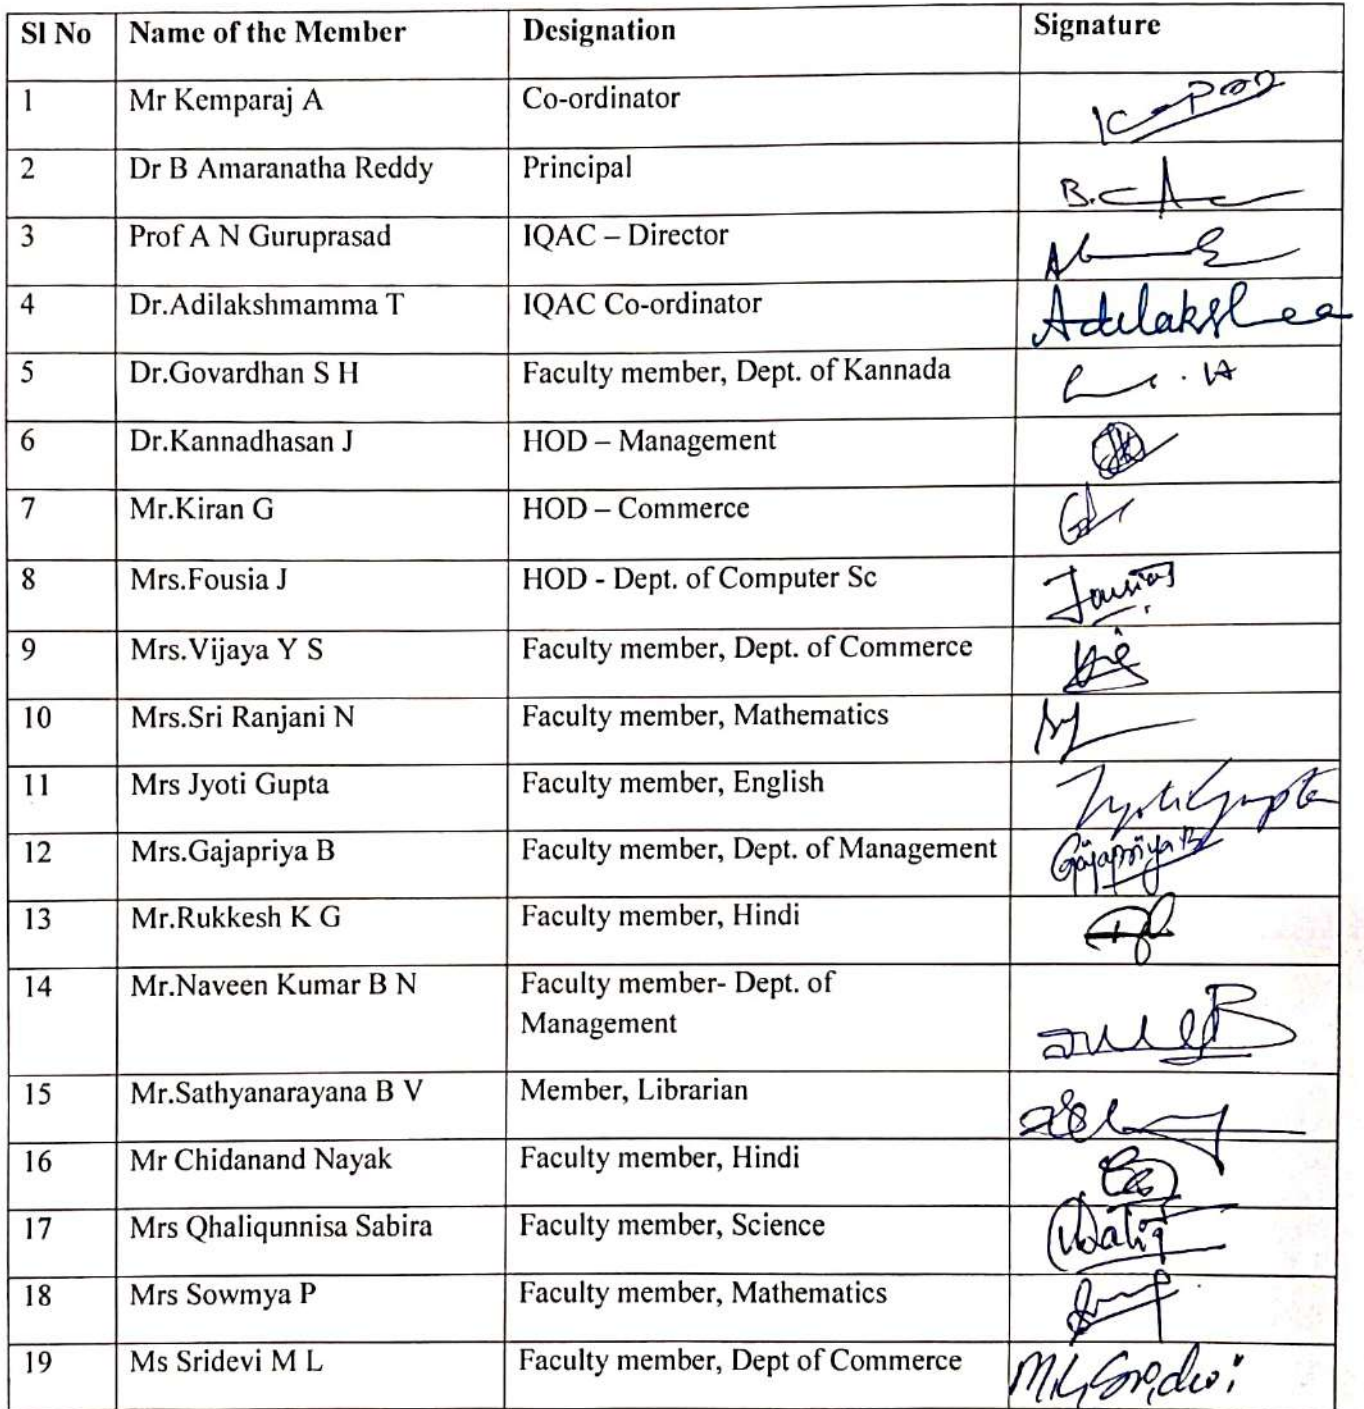 Sl No Name of the Member Designation Signature
1 Mr Kemparaj A Co-ordinator
2 Dr B Amaranatha Reddy Principal
3 Prof A N Guruprasad IQAC – Director
4 Dr.Adilakshmamma T IQAC Co-ordinator
5 Dr.Govardhan S H Faculty member, Dept. of Kannada
6 Dr.Kannadhasan J HOD – Management
7 Mr.Kiran G HOD – Commerce
8 Mrs.Fousia J HOD - Dept. of Computer Sc
9 Mrs.Vijaya Y S Faculty member, Dept. of Commerce
10 Mrs.Sri Ranjani N Faculty member, Mathematics
11 Mrs Jyoti Gupta Faculty member, English Jyoti Gupta
12 Mrs.Gajapriya B Faculty member, Dept. of Management Gajapriya B
13 Mr.Rukkesh K G Faculty member, Hindi
14 Mr.Naveen Kumar B N Faculty member- Dept. of
Management
15 Mr.Sathyanarayana B V Member, Librarian
16 Mr Chidanand Nayak Faculty member, Hindi
17 Mrs Qhaliqunnisa Sabira Faculty member, Science
18 Mrs Sowmya P Faculty member, Mathematics
19 Ms Sridevi M L Faculty member, Dept of Commerce